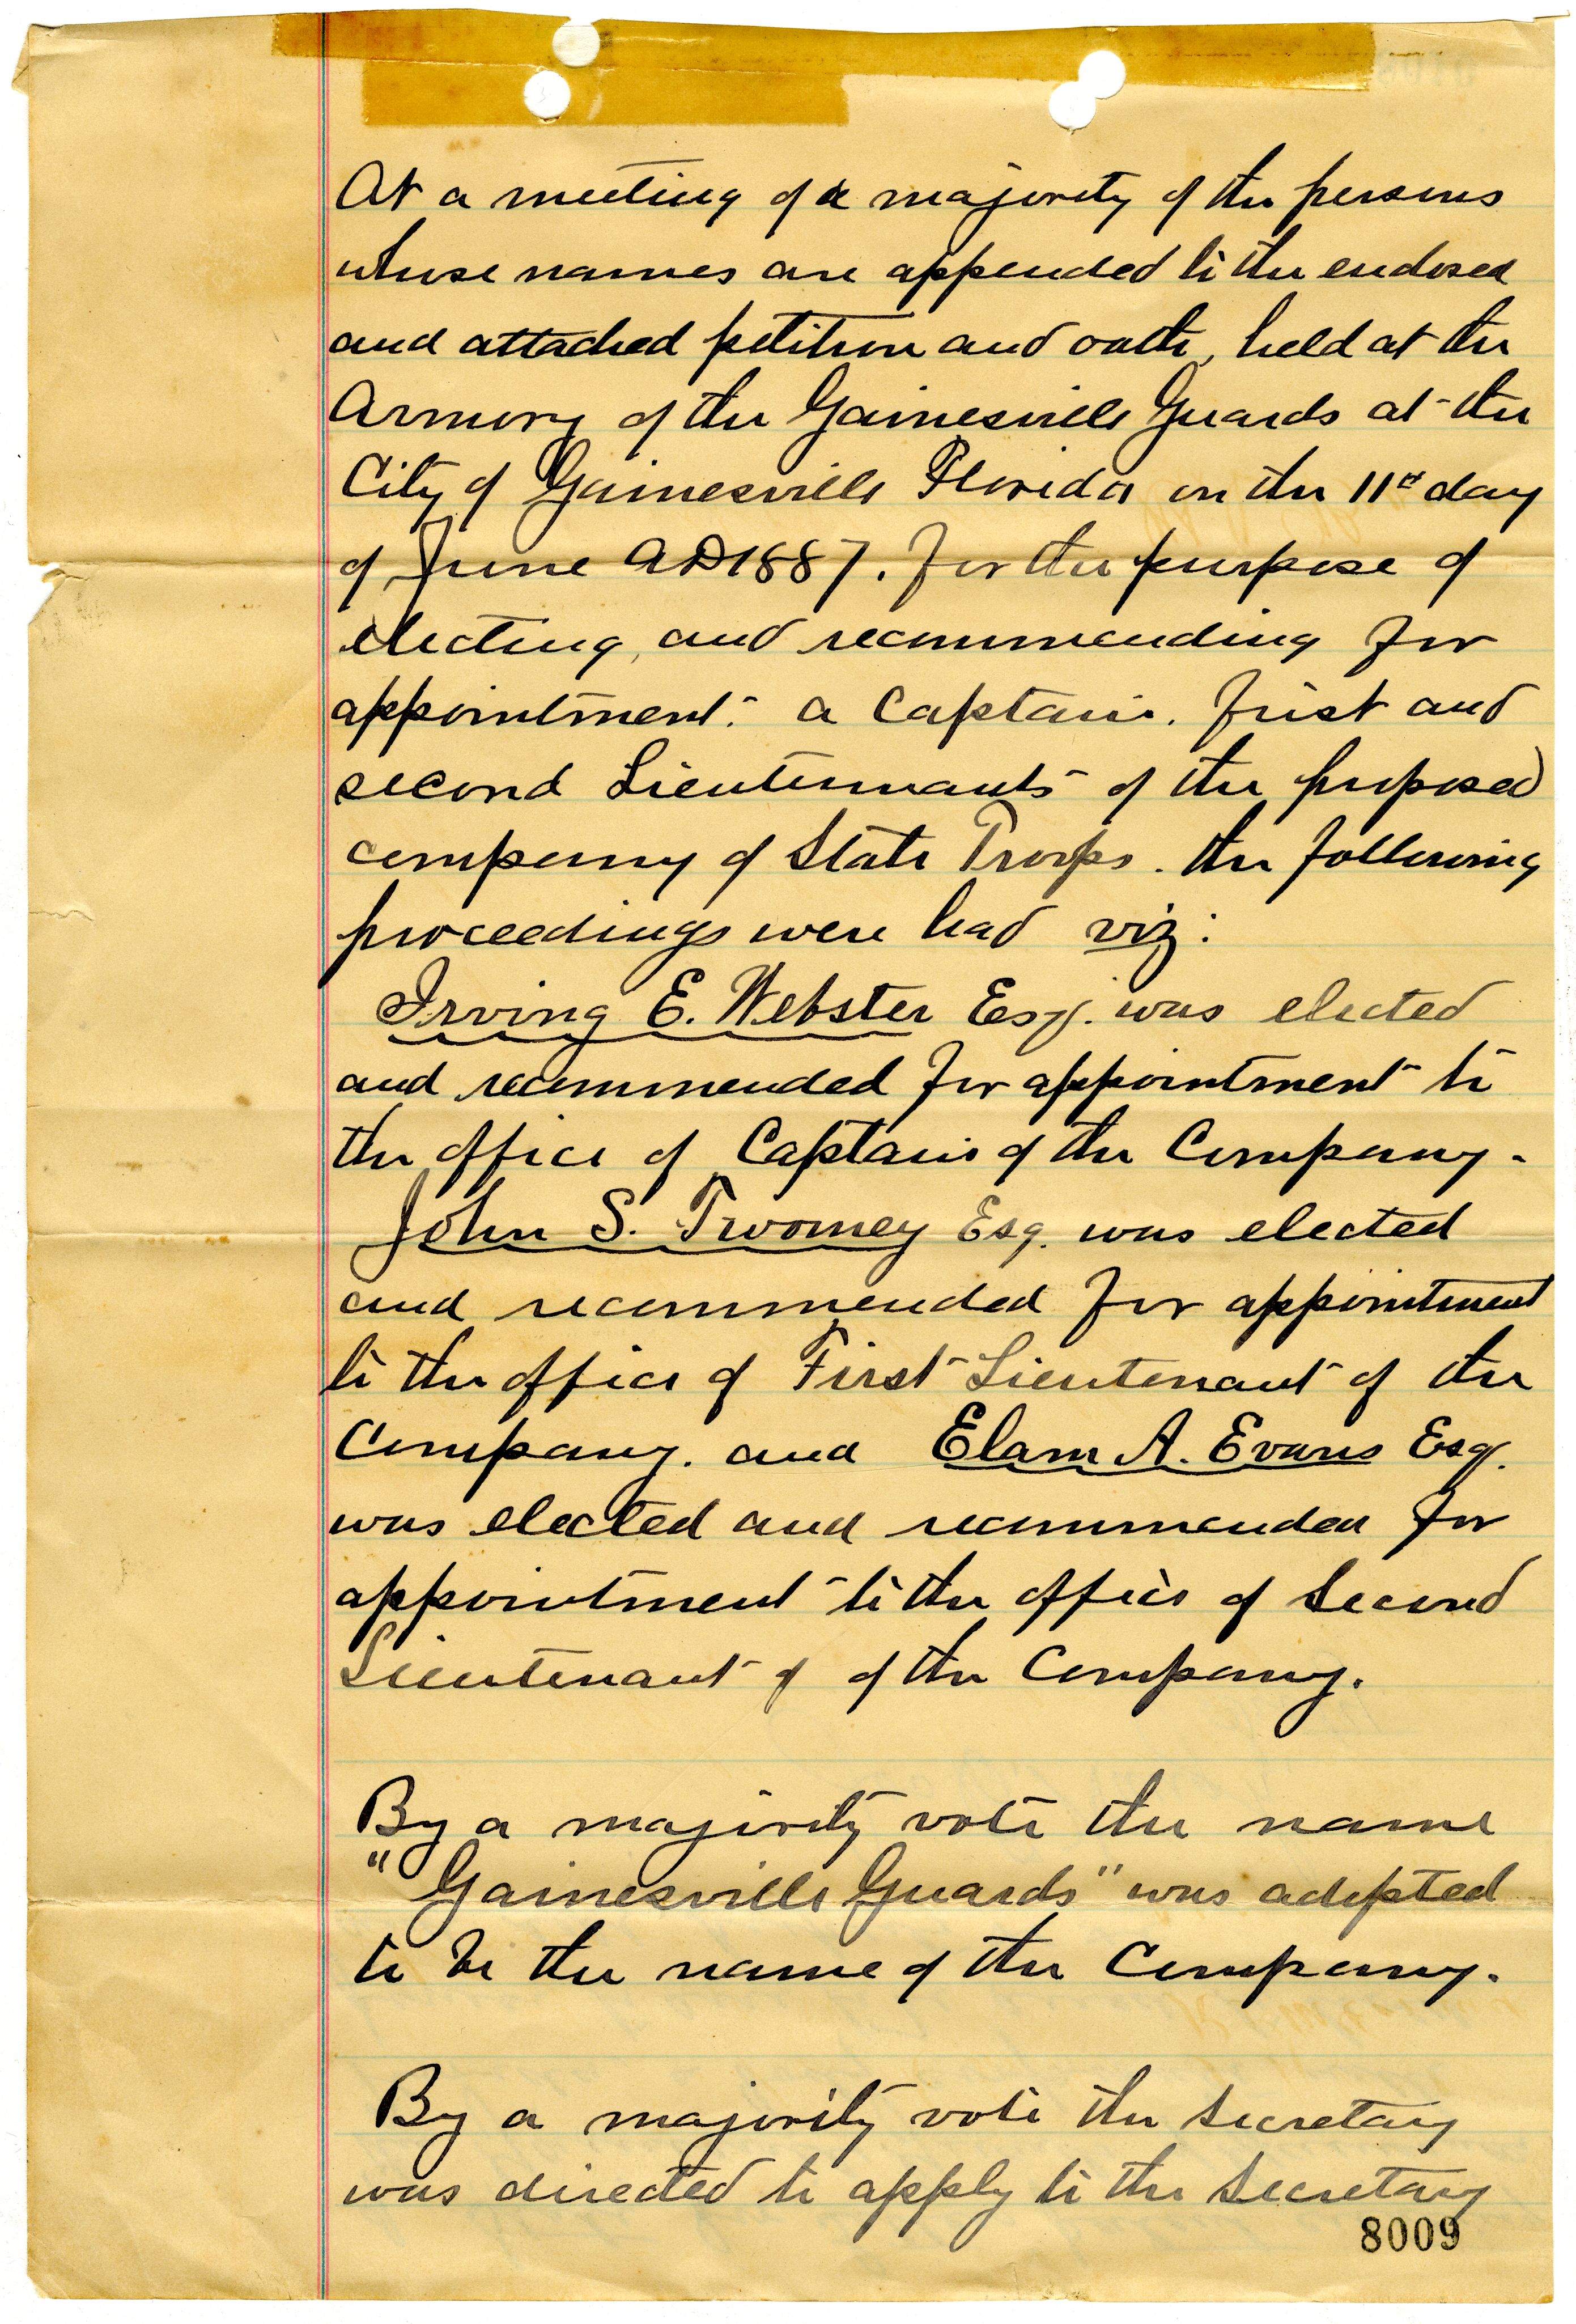 At a meeting of a majority of the persons
whose names are appended to the enclosed
and attached petition and oath, held at the
Armory of the Gainesville Guards at the
City of Gainesville Florida on the 11th day
of June AD 1887. for the purpose of
electing, and recommending for
appointment. a Captain. First and
second Lieutennants of the proposed
company of State Troops. the following
proceedings were had viz:
Irving E. Webster Esq. was elected
and recommended for appointment to
the office of Captain of the Company.
John S. Twomey Esq. was elected
and recommended for appointment
to the office of First Lieutenant of the
Company. and Elam A. Evans Esq.
was elected and recommended for
appointment to the office of Second
Lieutenant of of the Company.
By a majority vote the name
"Gainesville Guards" was adopted
to be the name of the Company.
By a majority vote the Secretary
was directed to apply to the Secretary
8009